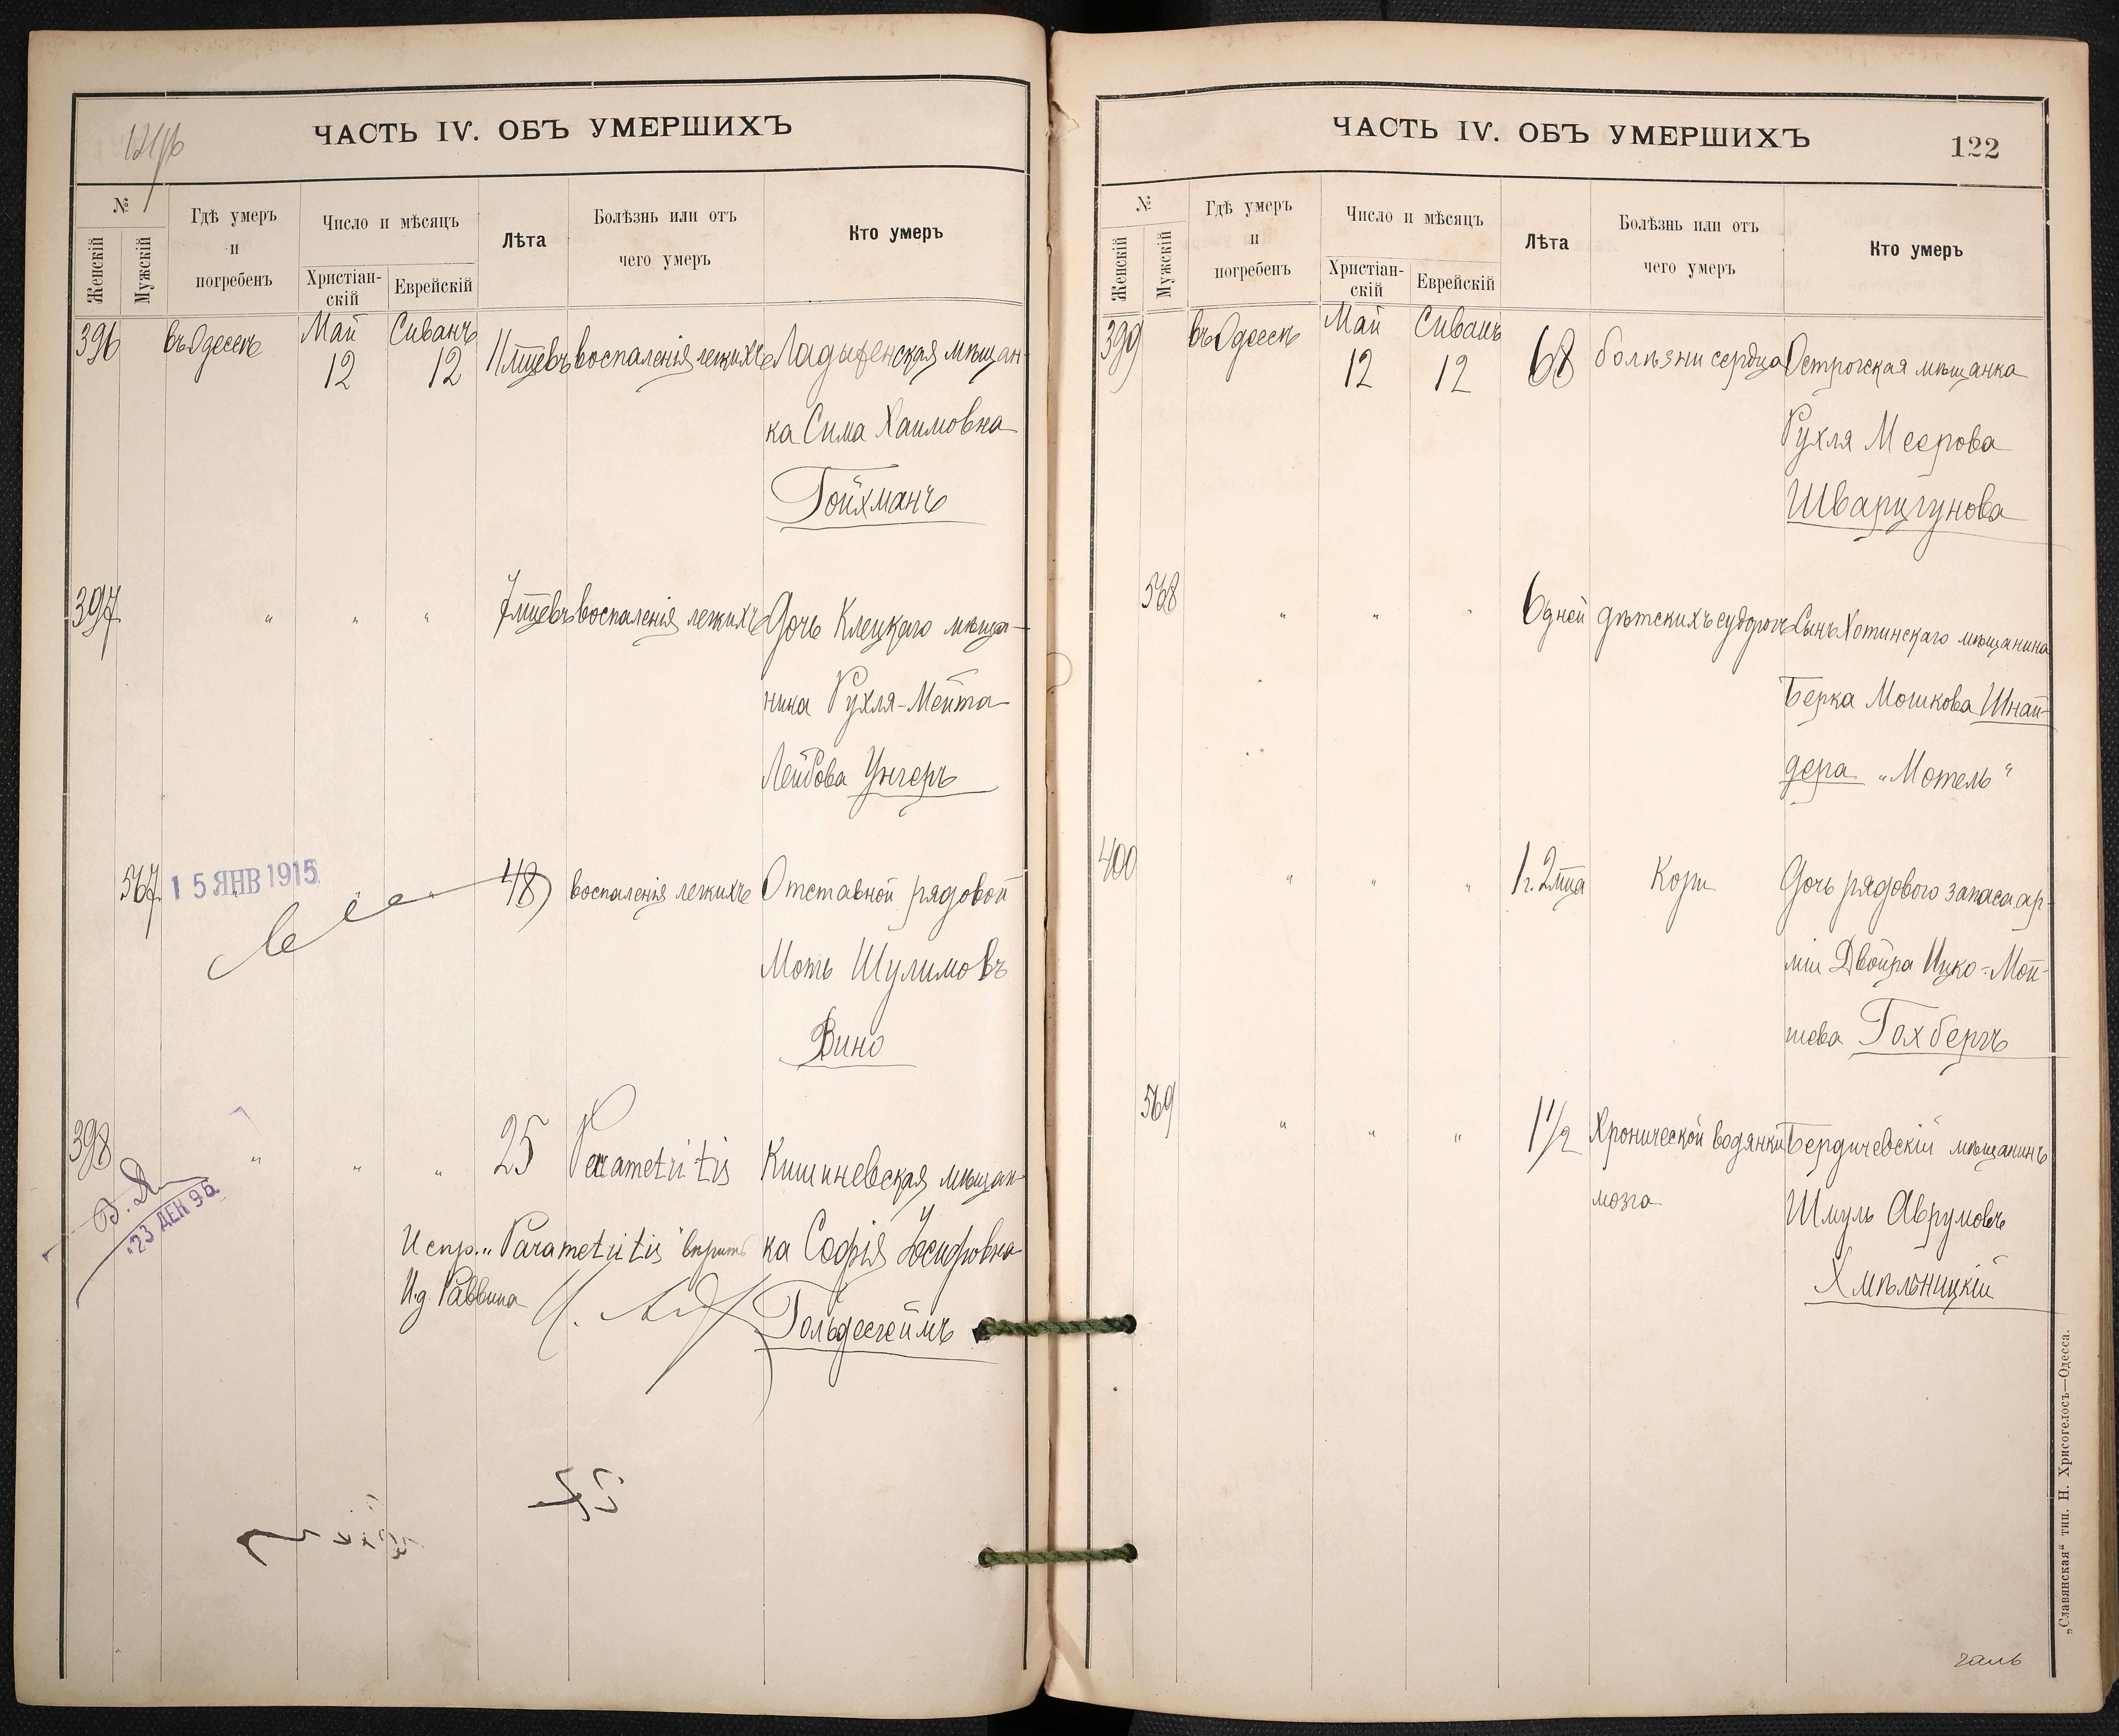 ЧАСТЬ IV. ОБЪ УМЕРШИХЪ
№
Женскій
Мужскій
Гдѣ умеръ
и
погребенъ
Число и мѣсяцъ
Христіан-
скій
Еврейскій
Лѣта
Болѣзнь или отъ
чего умеръ
Кто умеръ
396 въ Одессѣ Май 12 Сиванъ 12 11 мцевъ воспаленія легкихъ Ладыженская мѣщан-
ка Сима Хаимовна
Гойхманъ
397 " " " 7 мцевъ воспаленія легкихъ Дочь Клецкаго мѣща-
нина Рухля-Мейта
Лейбова Унгеръ
567 15 ЯНВ 1915 48 воспаленія легкихъ Отставной рядовой
Моть Шулимовъ
Вино
398 " " " 25 Parametritis Кишиневская мѣщан-
ка Софія Іосифовна
Гольдесгеймъ
23 ДЕК 96
Испр. "Parametritis" вѣрить
И.д. Раввина
ЧАСТЬ IV. ОБЪ УМЕРШИХЪ
122
№
Женскій
Мужскій
Гдѣ умеръ
и
погребенъ
Число и мѣсяцъ
Христіан-
скій
Еврейскій
Лѣта
Болѣзнь или отъ
чего умеръ
Кто умеръ
399 въ Одессѣ Май 12 Сиванъ 12 68 болѣзни сердца Острогская мѣщанка
Рухля Меерова
Шварцгунова
568 " " " 6 дней дѣтскихъ судорогъ Сынъ Хотинскаго мѣщанина
Берка Мошкова Шнай-
дера "Мотель"
400 " " " 1 г. 2 мца Кори Дочь рядового запаса ар-
міи Двойра Ицко-Мой-
шева Гохбергъ
569 " " " 1 1/2 Хронической водянки Бердичевскій мѣщанинъ
мозга Шмуль Аврумовъ
Хмѣльницкій
„Славянская“ тип. Н. Хрисогелосъ—Одесса.